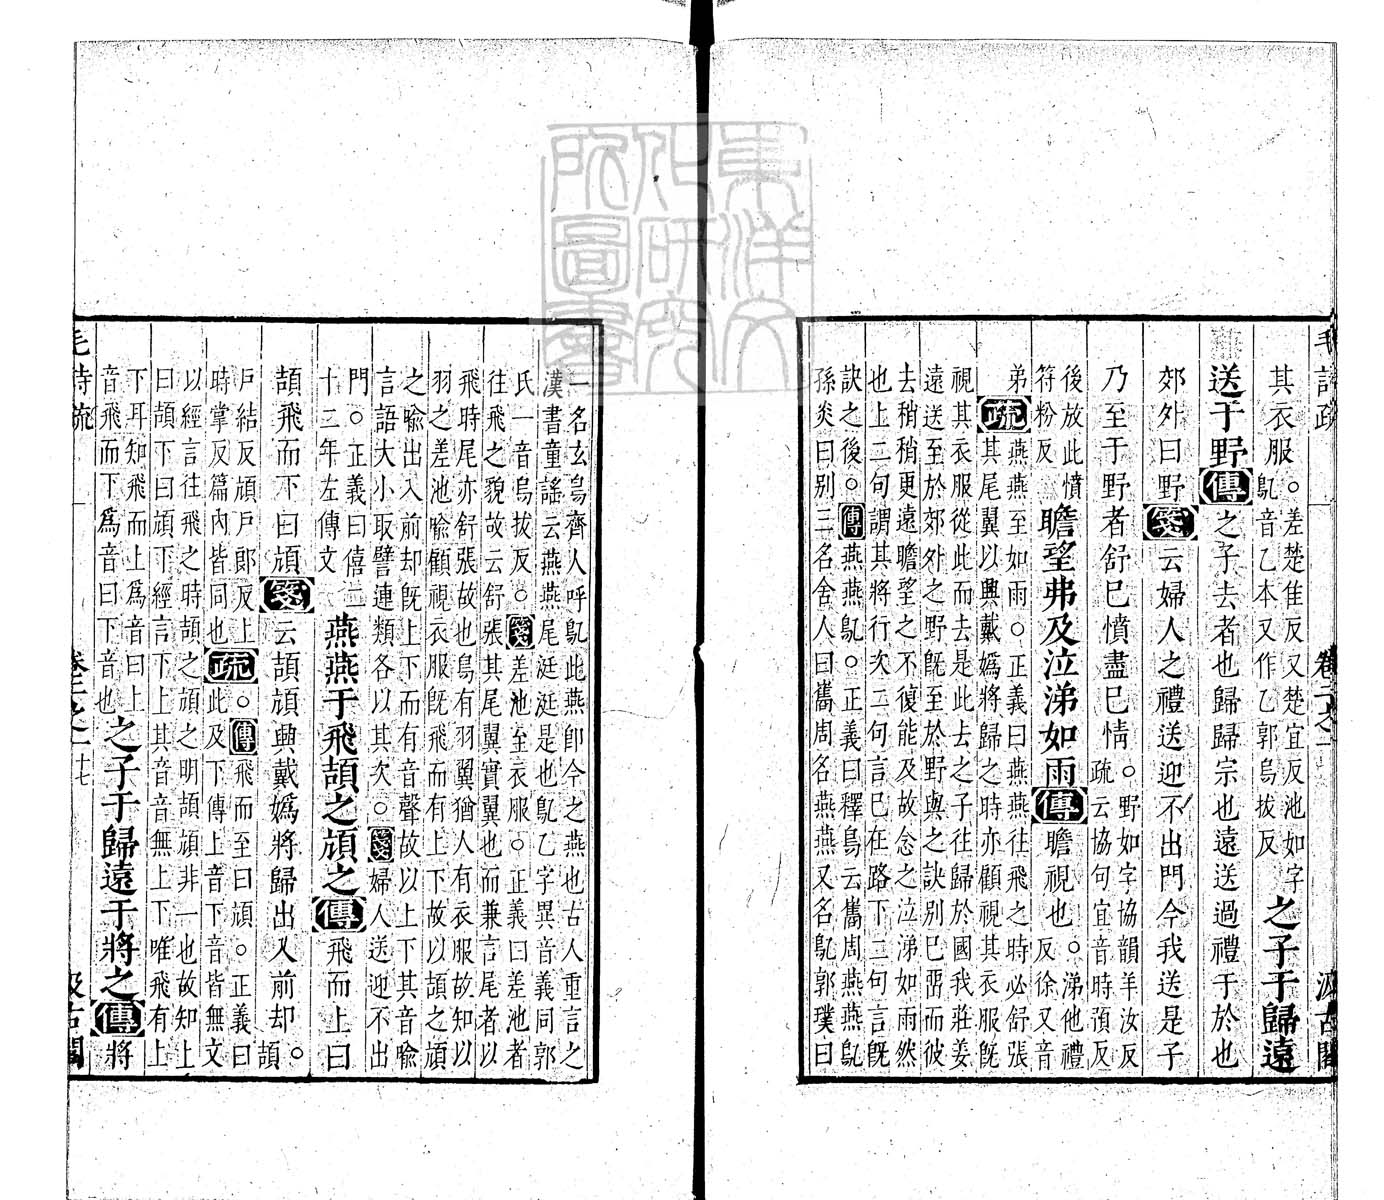 毛詩疏
卷二之一
汲古閣
其衣服○差楚佳反又楚宜反池如字
鳦音乙本又作乙郭烏拔反
之子于歸遠
送于野傳之子去者也歸歸宗也遠送過禮于於也
郊外曰野箋云婦人之禮送迎不出門今我送是子
乃至于野者舒已憤盡已情○野如字協韻羊汝反
疏云協句宜音時預反
後放此憤
符粉反
瞻望弗及泣涕如雨傳瞻視也○涕他禮
反徐又音
弟疏燕燕至如雨○正義曰燕燕往飛之時必舒張
其尾翼以興戴嬀將歸之時亦顧視其衣服旣
視其衣服從此而去是此去之子往歸於國我莊姜
遠送至於郊外之野旣至於野與之訣別已畱而彼
去稍稍更遠瞻望之不復能及故念之泣涕如雨然
也上二句謂其將行次二句言已在路下二句言旣
訣之後○傳燕燕鳦○正義曰釋鳥云巂周燕燕鳦
孫炎曰別三名舍人曰巂周名燕燕又名鳦郭璞曰
一名玄鳥齊人呼鳦此燕卽今之燕也古人重言之
漢書童謠云燕燕尾涎涎是也鳦乙字異音義同郭
氏一音烏拔反○箋差池至衣服○正義曰差池者
往飛之貌故云舒張其尾翼實翼也而兼言尾者以
飛時尾亦舒張故也鳥有羽翼猶人有衣服故知以
羽之差池喻顧視衣服旣飛而有上下故以頡之頏
之喻出入前却旣上下而有音聲故以上下其音喻
言語大小取譬連類各以其次○箋婦人送迎不出
門○正義曰僖二
十二年左傳文
燕燕于飛頡之頏之傳飛而上曰
頡飛而下曰頏箋云頡頏興戴嬀將歸出入前却○頡
戶結反頏戶郎反上
時掌反篇內皆同也
疏○傳飛而至曰頏○正義曰
此及下傳上音下音皆無文
以經言往飛之時頡之頏之明頡頏非一也故知上
曰頡下曰頏下經言下上其音音無上下唯飛有上
下耳知飛而上爲音曰上
音飛而下爲音曰下音也
之子于歸遠于將之傳將
毛詩疏
卷二之一
十七
汲古閣
東洋文
化研究
所圖書